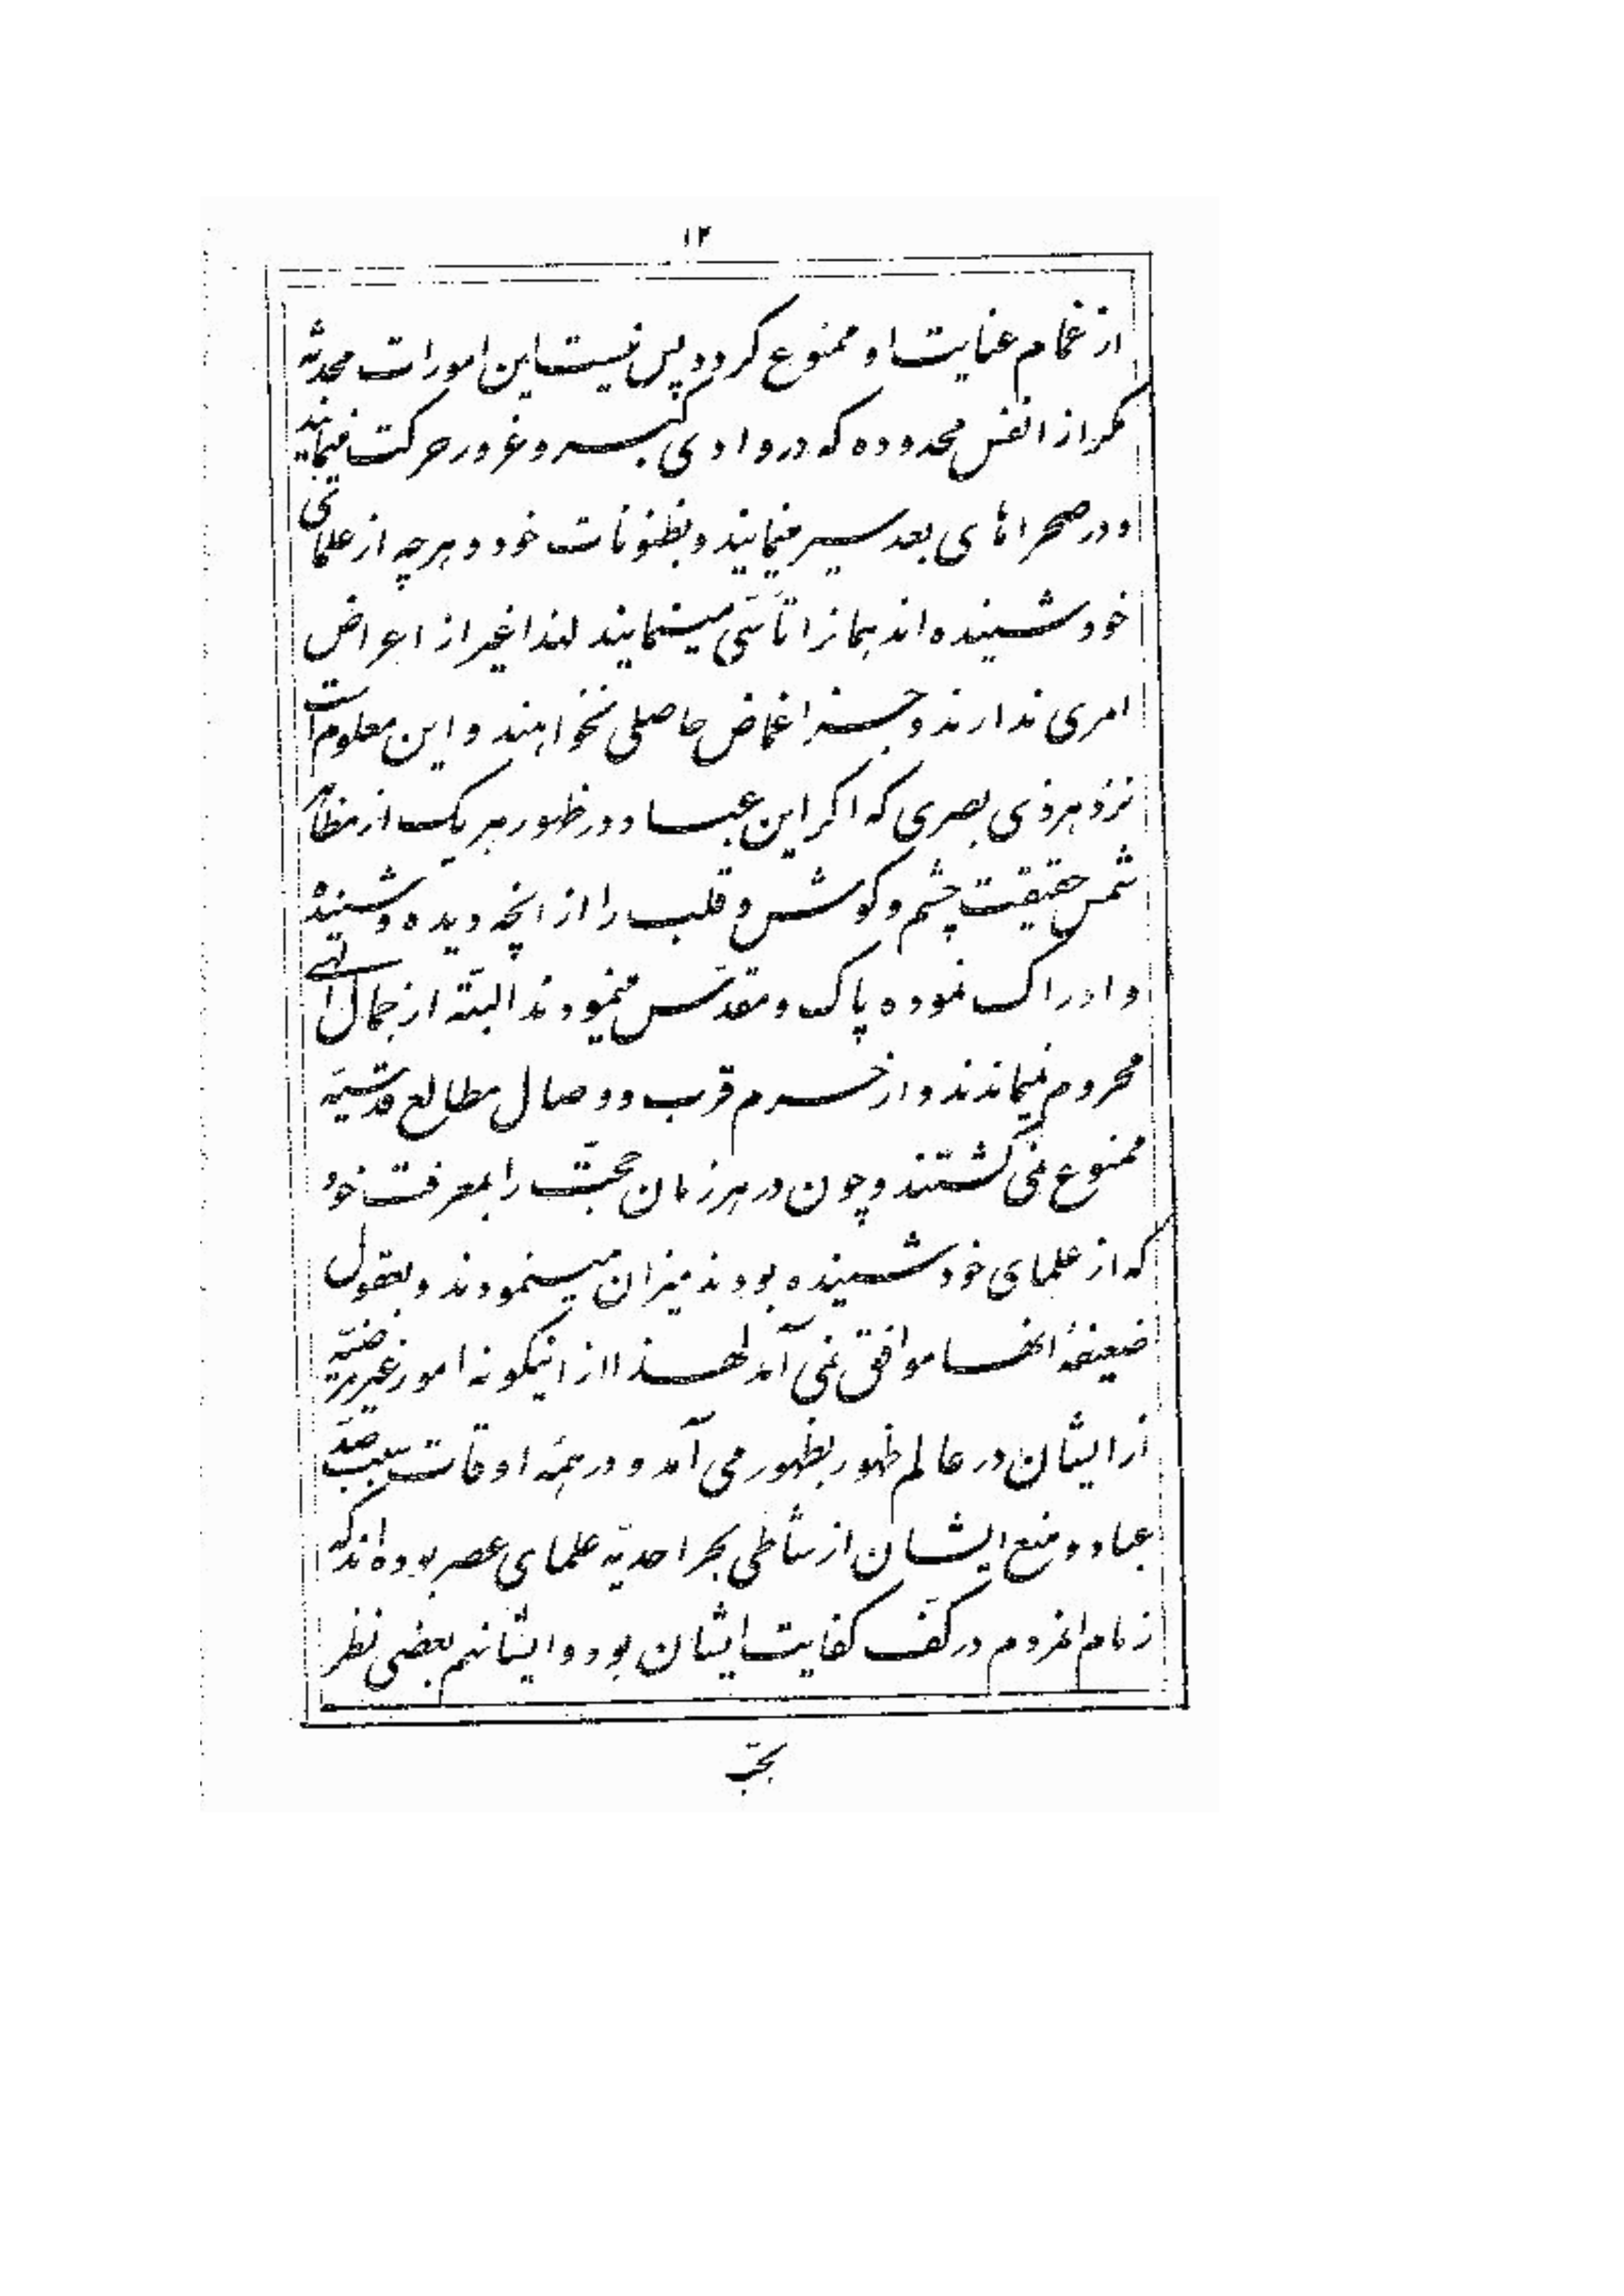 ۱۲
از غمام عنایت او ممنوع گردد پس نیست این امورات محدثه
مگر از انفس محدوده که در وادی کبر و غرور حرکت مینمایند
و در صحراهای بعد سیر مینمایند و بظنونات خود و هر چه از علمای
خود شنیده اند همانرا تأسّی مینمایند لهذا غیر از اعراض
امری ندارند و جز اغماض حاصلی نخواهند و این معلوم است
نزد هر ذی بصری که اگر این عباد در ظهور هر یک از مظاهر
شمس حقیقت چشم و گوش و قلب را از انچه دیده و شنیده
و ادراک نموده پاک و مقدّس مینمودند البتّه از جمال الهی
محروم نمیماندند و از حرم قرب و وصال مطالع قدسیّه
ممنوع نمی گشتند و چون در هر زمان حجّت را بمعرفت خود
که از علمای خود شنیده بودند میزان مینمودند و بعقول
ضعیفهٔ انها موافق نمی آمد لهذا از اینگونه امور غیر مرضیّه
از ایشان در عالم ظهور بظهور می آمد و در همهٔ اوقات سبب صدّ
عباد و منع ایشان از شاطی بحر احدیّه علمای عصر بوده اند که
زمام انمردم در کف کفایت ایشان بود و ایشانهم بعضی نظر
بحبّ